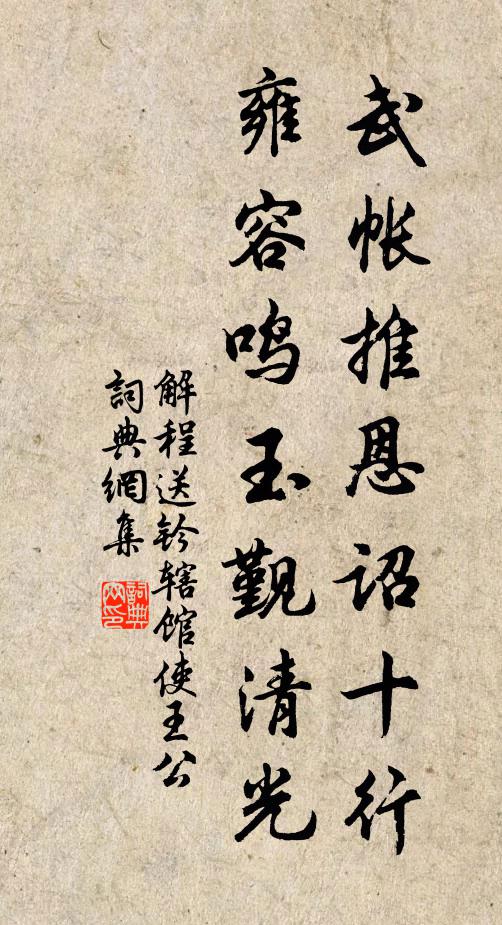 武帐推恩诏十行
雍容鸣玉觐清光
解程送钤辖馆使王公
詞典網集
詞典